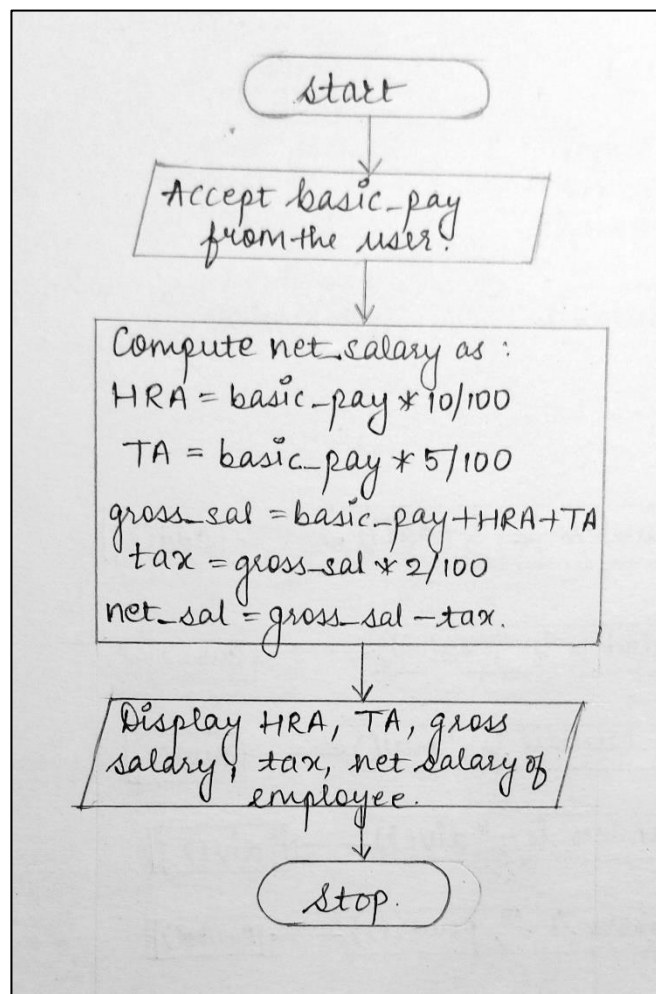 start
Accept basic_pay
from the user.
Compute net_salary as :
HRA = basic_pay * 10/100
TA = basic_pay * 5/100
gross_sal = basic_pay+HRA+TA
tax = gross_sal * 2/100
net_sal = gross_sal - tax.
Display HRA, TA, gross
salary, tax, net salary of
employee.
stop.